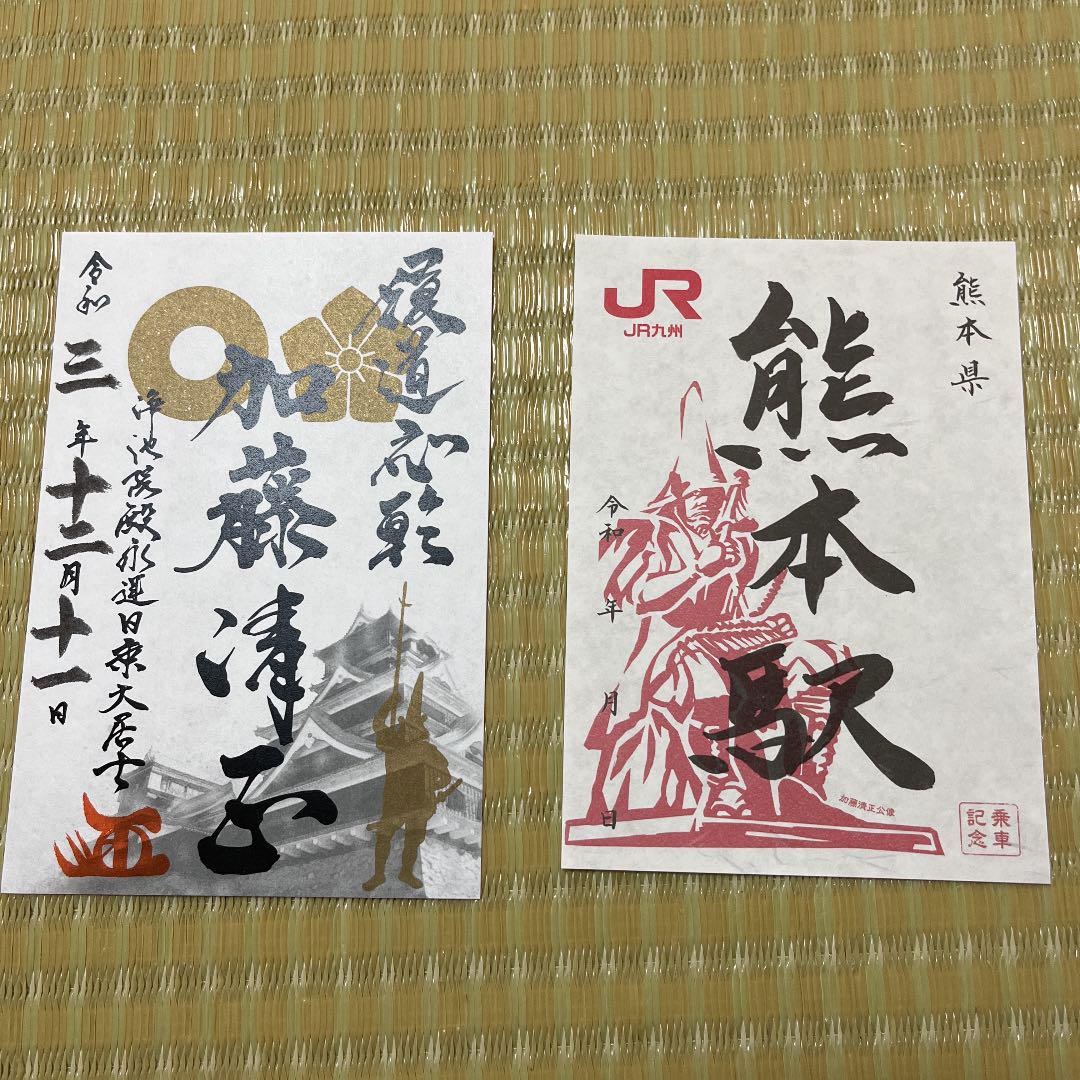 履道応乾
加藤清正
浄池院殿永運日乗大居士
令和三年十二月十一日
JR
JR九州
熊本県
熊本駅
令和 年 月 日
加藤清正公像
乗車
記念